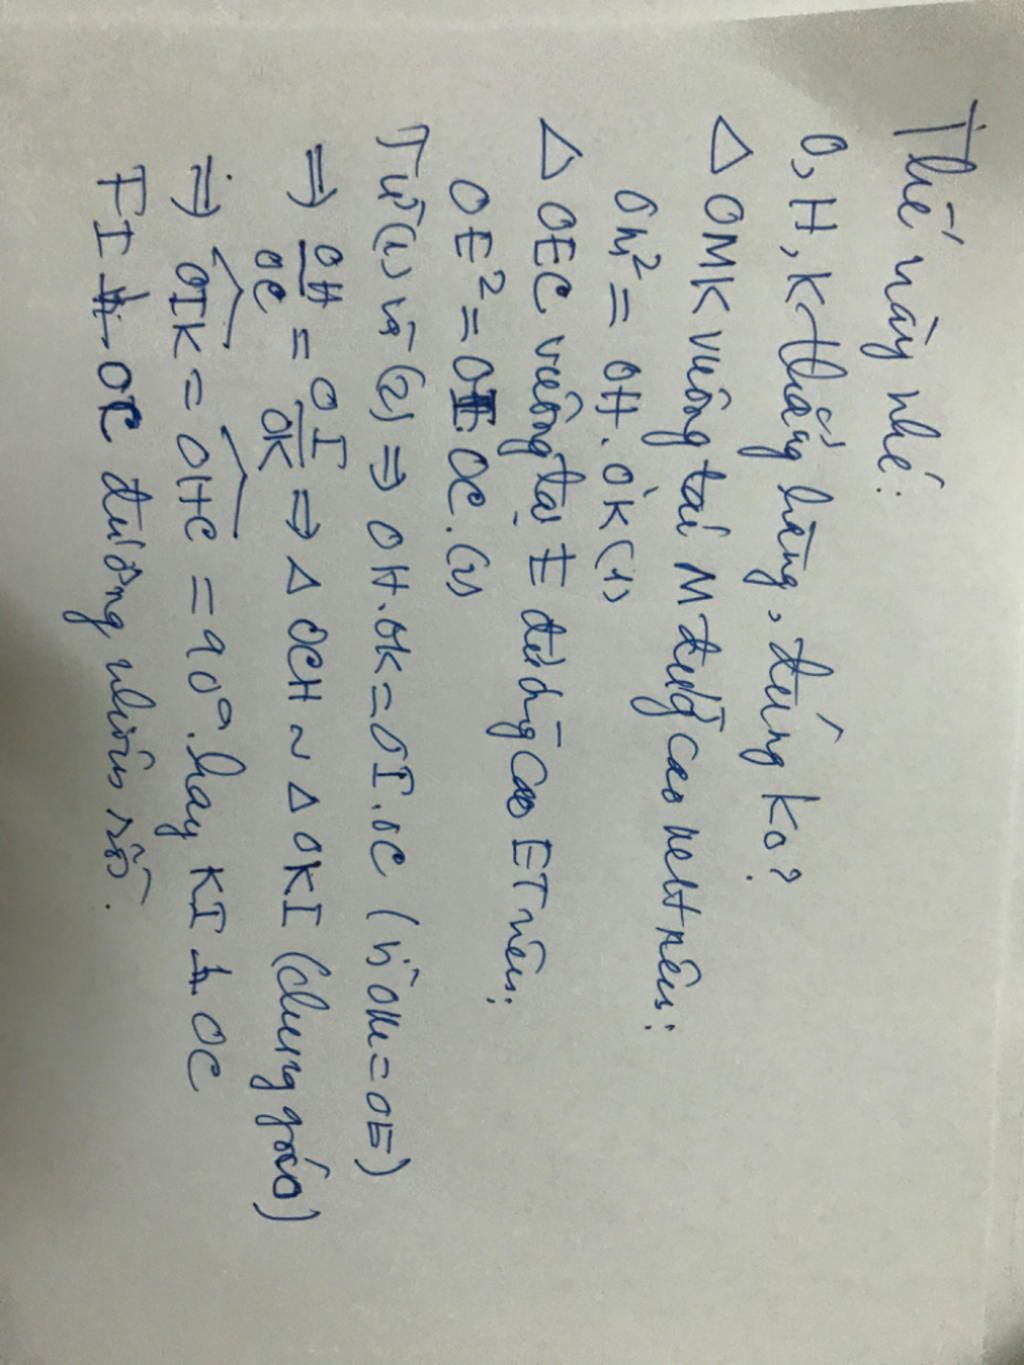 Thế này nhé:
O, H, K thẳng hàng, đúng ko?
Δ OMK vuông tại M đường cao MH nên:
OM² = OH. OK (1)
Δ OEC vuông tại E đường cao EI nên:
OE² = OI. OC. (2)
Từ (1) và (2) ⇒ OH. OK = OI. OC (vì OM = OE)
⇒ OH/OC = OI/OK ⇒ Δ OCH ~ Δ OKI (chung góc O)
⇒ OIK = OHC = 90°. hay KI ⊥ OC
EI ⊥ OC đương nhiên rồi.